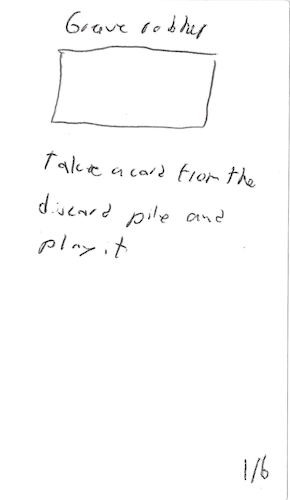 Grave robber
Take a card from the
discard pile and
play it
1/6